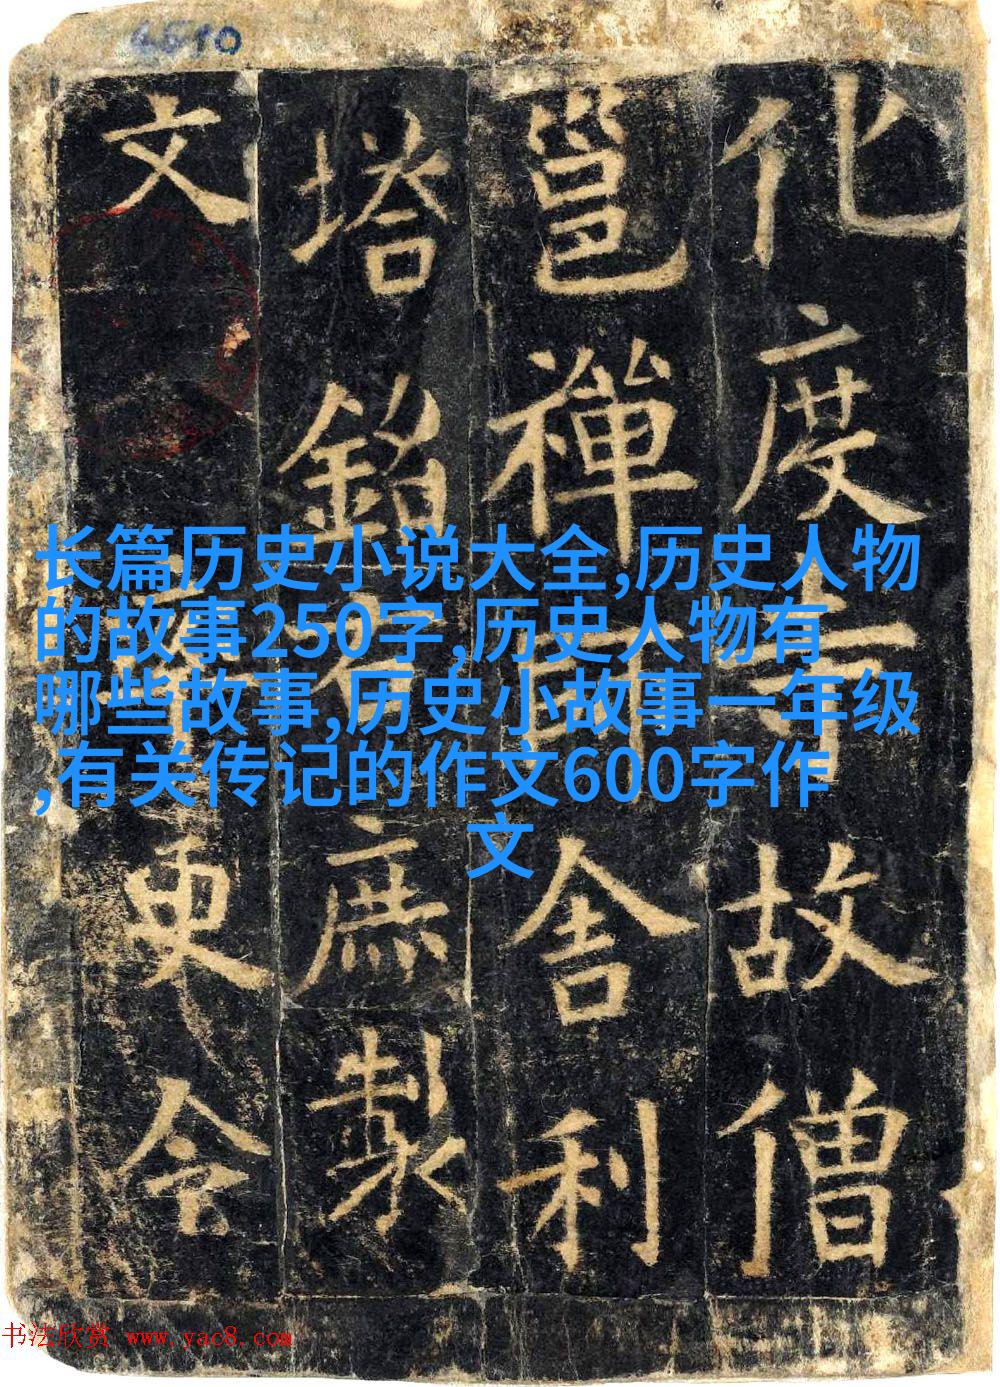 化度寺故僧
邕禪師舍利
塔銘右庶製
文率更令
长篇历史小说大全,历史人物
的故事250字,历史人物有
哪些故事,历史小故事一年级
,有关传记的作文600字作
文
书法欣赏 www.yac8.com